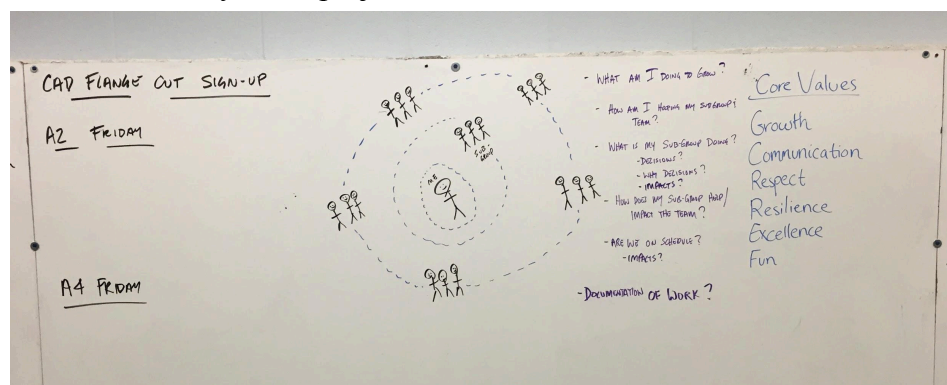 CAD FLANGE CUT SIGN-UP
A2 FRIDAY
A4 FRIDAY
ME
SUB-
GROUP
- WHAT AM I DOING TO GROW?
- HOW AM I HELPING MY SUBGROUP &
TEAM?
- WHAT IS MY SUB-GROUP DOING?
- DECISIONS?
- WHY DECISIONS?
- IMPACTS?
- HOW DOES MY SUB-GROUP HELP/
IMPACT THE TEAM?
- ARE WE ON SCHEDULE?
- IMPACTS?
- DOCUMENTATION OF WORK?
Core Values
Growth
Communication
Respect
Resilience
Excellence
Fun